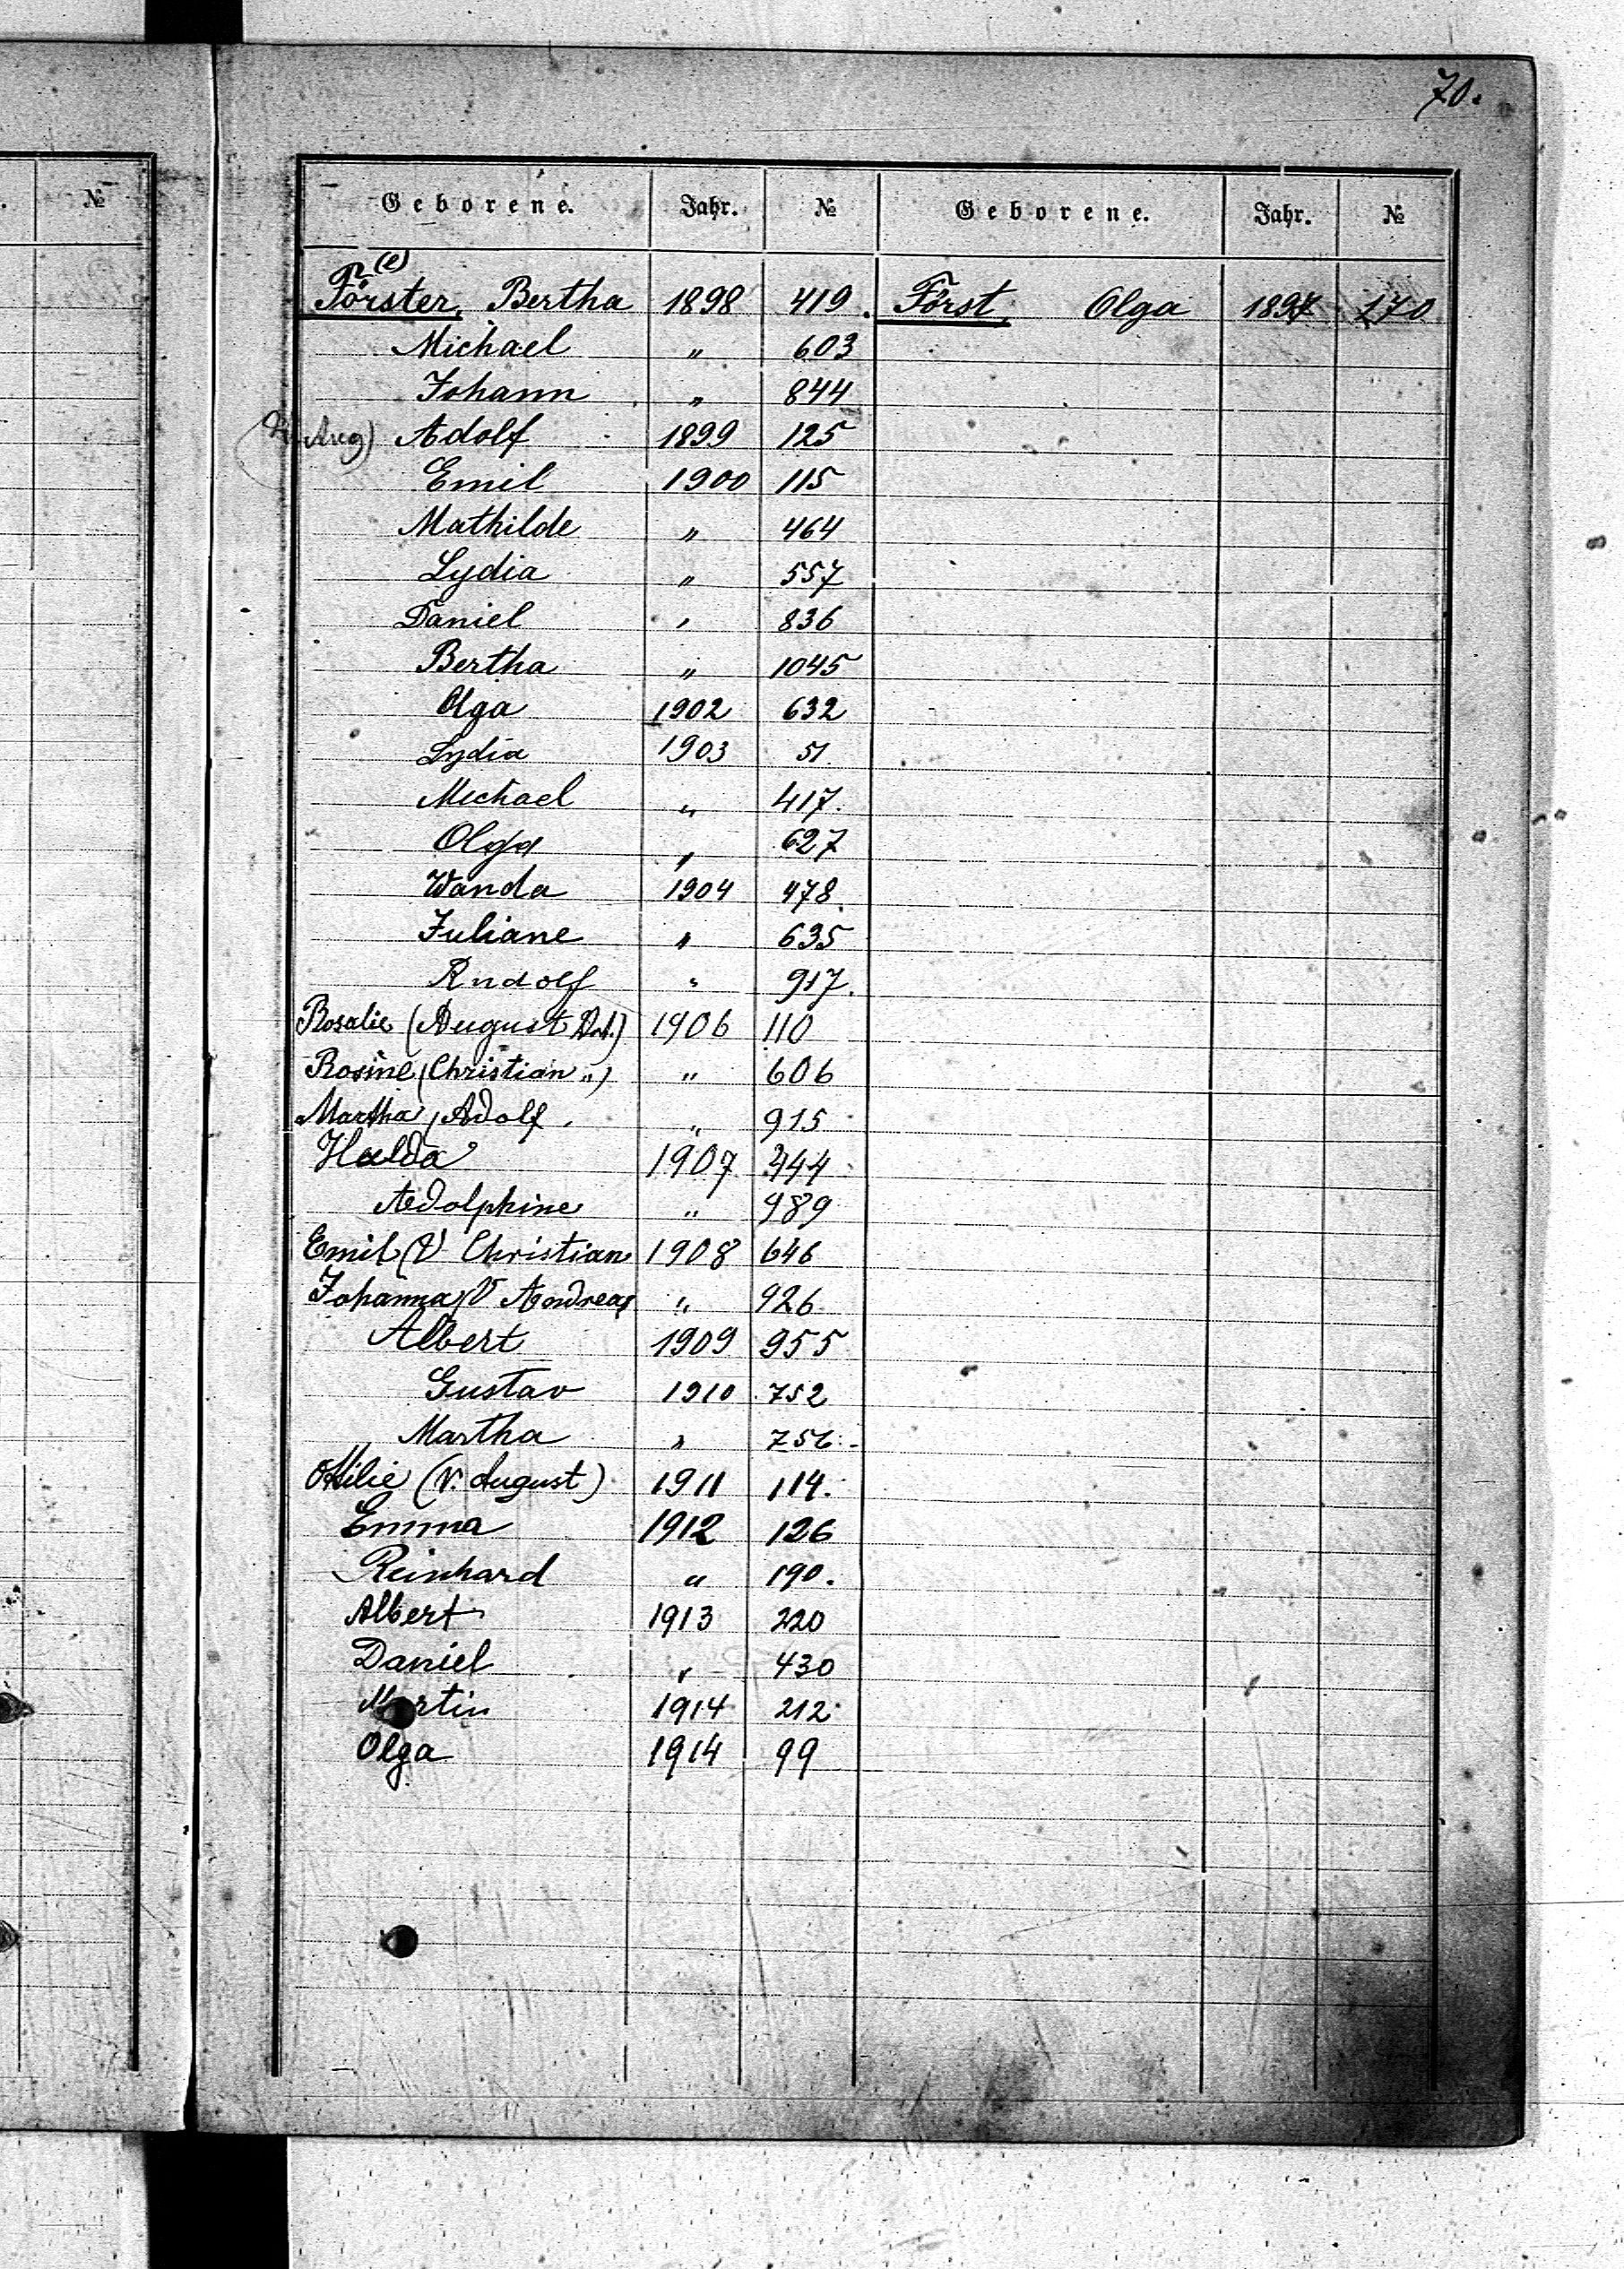 70.
№
Geborene. Jahr. № Geborene. Jahr. №
(e)
Förster, Bertha 1898 419. Först, Olga 1897 170
Michael " 603
Johann " 844
Aug) Adolf 1899 125
Emil 1900 115
Mathilde " 464
Lydia " 557
Daniel " 836
Bertha " 1045
Olga 1902 632
Lydia 1903 51.
Michael " 417.
Olga " 627
Wanda 1904 478.
Juliane " 635
Rudolf " 917.
Rosalie (August 1906 110
Rosine (Christian ") " 606
Martha, Adolf. " 915
Hulda 1907 444
Adolphine " 989
Emil (V Christian 1908 646
Johanna (V Andreas " 926
Albert 1909 955
Gustav 1910 752
Martha "
Ottilie (V. August) 1911 114.
Emma 1912 126
Reinhard " 190.
Albert 1913 220
Daniel " 430
Martin 1914 212
Olga 1914 99